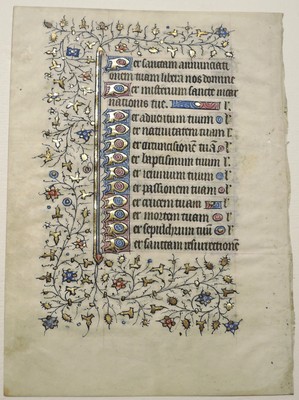 Per sanctam annunciati
onem tuam libera nos domine
Per misterium sancte incar
nationis tue. lr.
Per aduentum tuum lr.
Per natiuitatem tuam. lr.
Per circuncisionem tuã lr.
Per baptismum tuum lr.
Per ieiunium tuum lr.
Per passionem tuam lr.
Per crucem tuam lr.
Per mortem tuam lr.
Per sepulchrum tuũ lr.
Per sanctam resurrectionẽ